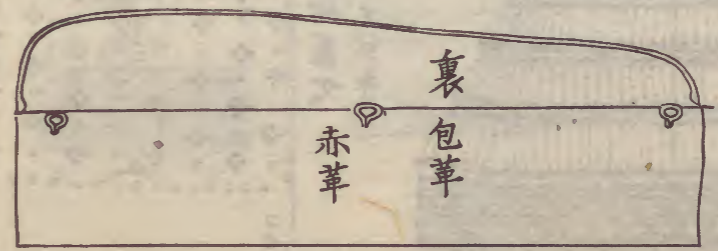 裏
包革
赤革